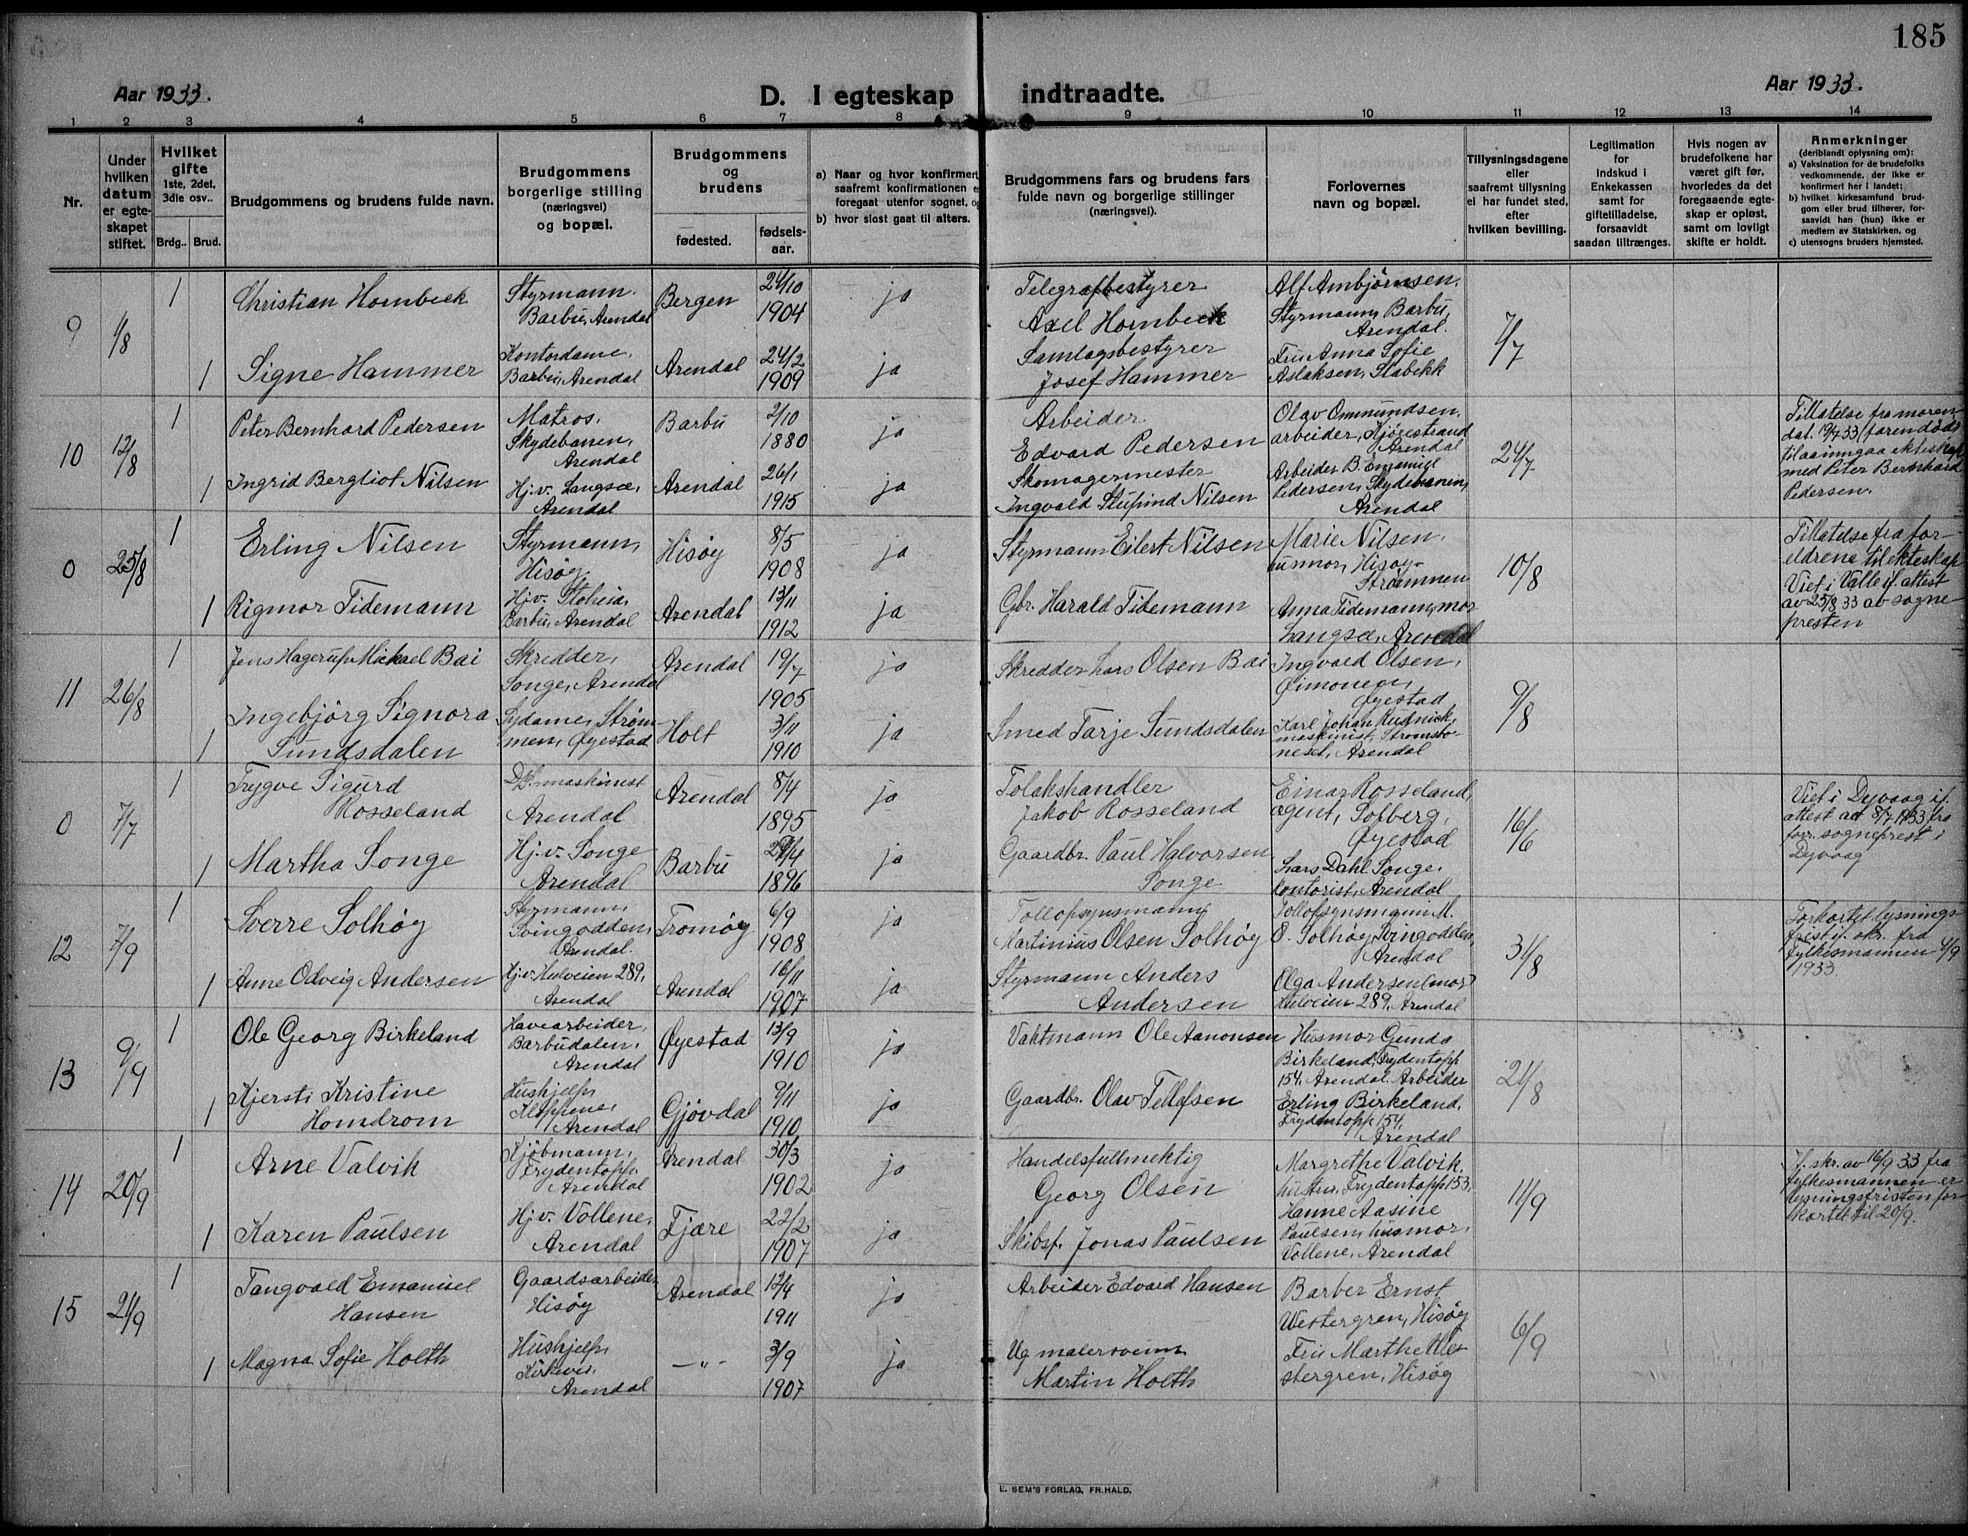 185
Aar 1933.
D. I egteskap indtraadte.
Aar 1933.
1 2 3 4 5 6 7 8 9 10 11 12 13 14
Nr.
Under hvilken datum er egteskapet stiftet.
Hvilket gifte 1ste, 2det, 3die osv..
Brdg.. Brud.
Brudgommens og brudens fulde navn.
Brudgommens borgerlige stilling (næringsvei) og bopæl.
Brudgommens og brudens
fødested.
fødsels-aar.
a) Naar og hvor konfirmert,
saafremt konfirmationen
foregaat utenfor sognet,
b) hvor sidst gaat til alters.
Brudgommens fars og brudens fars
fulde navn og borgerlige stillinger
(næringsvei).
Forlovernes
navn og bopæl.
Tillysningsdagene
eller
saafremt tillysning
ei har fundet sted,
efter
hvilken bevilling.
Legitimation
for
indskud i
Enkekassen
samt for
giftetilladelse,
forsaavidt
saadan tiltrænges.
Hvis nogen av
brudefolkene har
været gift før,
hvorledes da det
foregaaende egte-
skap er opløst,
samt om lovligt
skifte er holdt.
Anmerkninger
(deriblandt oplysning om):
a) Vaksination for de brudefolks
vedkommende, der ikke er
konfirmert her i landet;
b) hvilket kirkesamfund brud-
gom eller brud tilhører, for-
saavidt han (hun) ikke er
medlem av Statskirken, og
c) utensogns bruders hjemsted.
9 1/8 1 Christian Hornbeck
Styrmann.
Barbu, Arendal
Bergen 24/10
1904
ja
Telegrafbestyrer
Axel Hornbeck
Alf Ambjørnsen,
Styrmann, Barbu,
Arendal.
7/7
1 Signe Hammer
Kontordame,
Barbu, Arendal
Arendal 24/2
1909
ja
Samlagsbestyrer
Josef Hammer
Fru Anna Sofie
Aslaksen, Stabekk
10 12/8 1 Peter Bernhard Pedersen
Matros,
Skydebanen,
Arendal
Barbu 2/10
1880
ja
Arbeider
Edvard Pedersen
Olav Ommundsen,
arbeider,
Arendal
24/7
Tillatelse fra moren
dat. 19/7 33 (faren død)
til aa inngaa ekteskap
med Peter Bernhard
Pedersen.
1 Ingrid Bergliot Nilsen
Hj.v. Langsæ,
Arendal
Arendal 26/1
1915
ja
Skomagermester
Ingvald Nilsen
Arbeider B. Emanuel
Pedersen, Skydebanen,
Arendal
0 25/8 1 Erling Nilsen
Styrmann,
Hisøy
Hisøy 8/5
1908
ja
Styrmann Eilert Nilsen
Marie Nilsen,
husmor, Hisøy-
Strømmen
10/8
Tillatelse fra for-
eldrene til ekteskap
Viet i Valle if. attest
av 25/8 33 av sogne-
presten
1 Rigmor Tidemann
Hj.v. Stoheia,
Barbu, Arendal
Arendal 13/11
1912
ja
Gbr. Harald Tidemann
Anna Tidemann, mor
Langsæ, Arendal
11 26/8 1 Jens Hagerup Mickael Bai
Skredder,
Songe, Arendal
Arendal 19/7
1905
ja
Skredder Lars Olsen Bai
Ingvald Olsen,
Øyestad
9/8
1 Ingebjørg Signora
Sundsdalen
Sydame, Strøm-
men, Øyestad
Holt 3/11
1910
ja
Smed Tarje Sundsdalen
Karl Johan Rudnick,
maskinist, Strømsbo-
neset, Arendal
0 7/7 1 Trygve Sigurd
Rosseland
D/S. maskinist
Arendal
Arendal 8/4
1895
ja
Tolakshandler
Jakob Rosseland
Einar Rosseland,
agent, Solberg,
Øyestad
16/6
Viet i Dypvaag if.
attest ad 8/7 1933 fra
forr. sogneprest i
Dypvaag
1 Martha Songe
Hj.v. Songe
Arendal
Barbu 29/4
1896
ja
Gaardbr. Paul Halvorsen
Songe
Lars Dahl Songe,
kontorist, Arendal
12 7/9 1 Sverre Solhøy
Styrmann,
Svingodden,
Arendal
Tromøy 6/9
1908
ja
Tollopsynsmann
Martinius Olsen Solhøy
Tollopsynsmann M.
O. Solhøy, Svingodden,
Arendal
31/8
Forkortet lysnings-
frist if. skr. fra
fylkesmannen 4/9
1933.
1 Anne Odveig Andersen
Hj.v. Hulveien 289,
Arendal
Arendal 16/11
1907
ja
Styrmann Anders
Andersen
Olga Andersen (mor)
Hulveien 289, Arendal
13 9/9 1 Ole Georg Birkeland
Havearbeider,
Barbudalen,
Arendal
Øyestad 13/9
1910
ja
Vaktmann Ole Aanonsen
Husmor Gunda
Birkeland, Frydentopp
154, Arendal. Arbeider
Erling Birkeland,
Frydentopp 154,
Arendal
21/8
1 Kjersti Kristine
Homdrom
Hushjelp,
Kloppene,
Arendal
Gjøvdal 9/11
1910
ja
Gaardbr. Olav Tellefsen
14 20/9 1 Arne Valvik
Kjøbmann,
Frydentopp,
Arendal
Arendal 30/3
1902
ja
Handelsfullmektig
Georg Olsen
Margrethe Valvik,
hustru, Frydentopp 153,
11/9
If. skr. av 16/9 33 fra
fylkesmannen er
lysningsfristen for-
kortet til 20/9.
1 Karen Paulsen
Hj.v. Vollene,
Arendal
Fjære 22/2
1907
ja
Skibsf. Jonas Paulsen
Hanne Aasine
Paulsen, husmor,
Vollene, Arendal
15 21/9 1 Tangvald Emanuel
Hansen
Gaardsarbeider
Hisøy
Arendal 12/4
1911
ja
Arbeider Edvard Hansen
Barber Ernst
Westergren, Hisøy
6/9
1 Magna Sofie Holth
Hushjelp,
Kirkevei,
Arendal
— „ — 3/9
1907
ja
Ug malersvenn
Martin Holth
Fru Marthe Wes-
stergren, Hisøy
E. SEM'S FORLAG, FR.HALD.